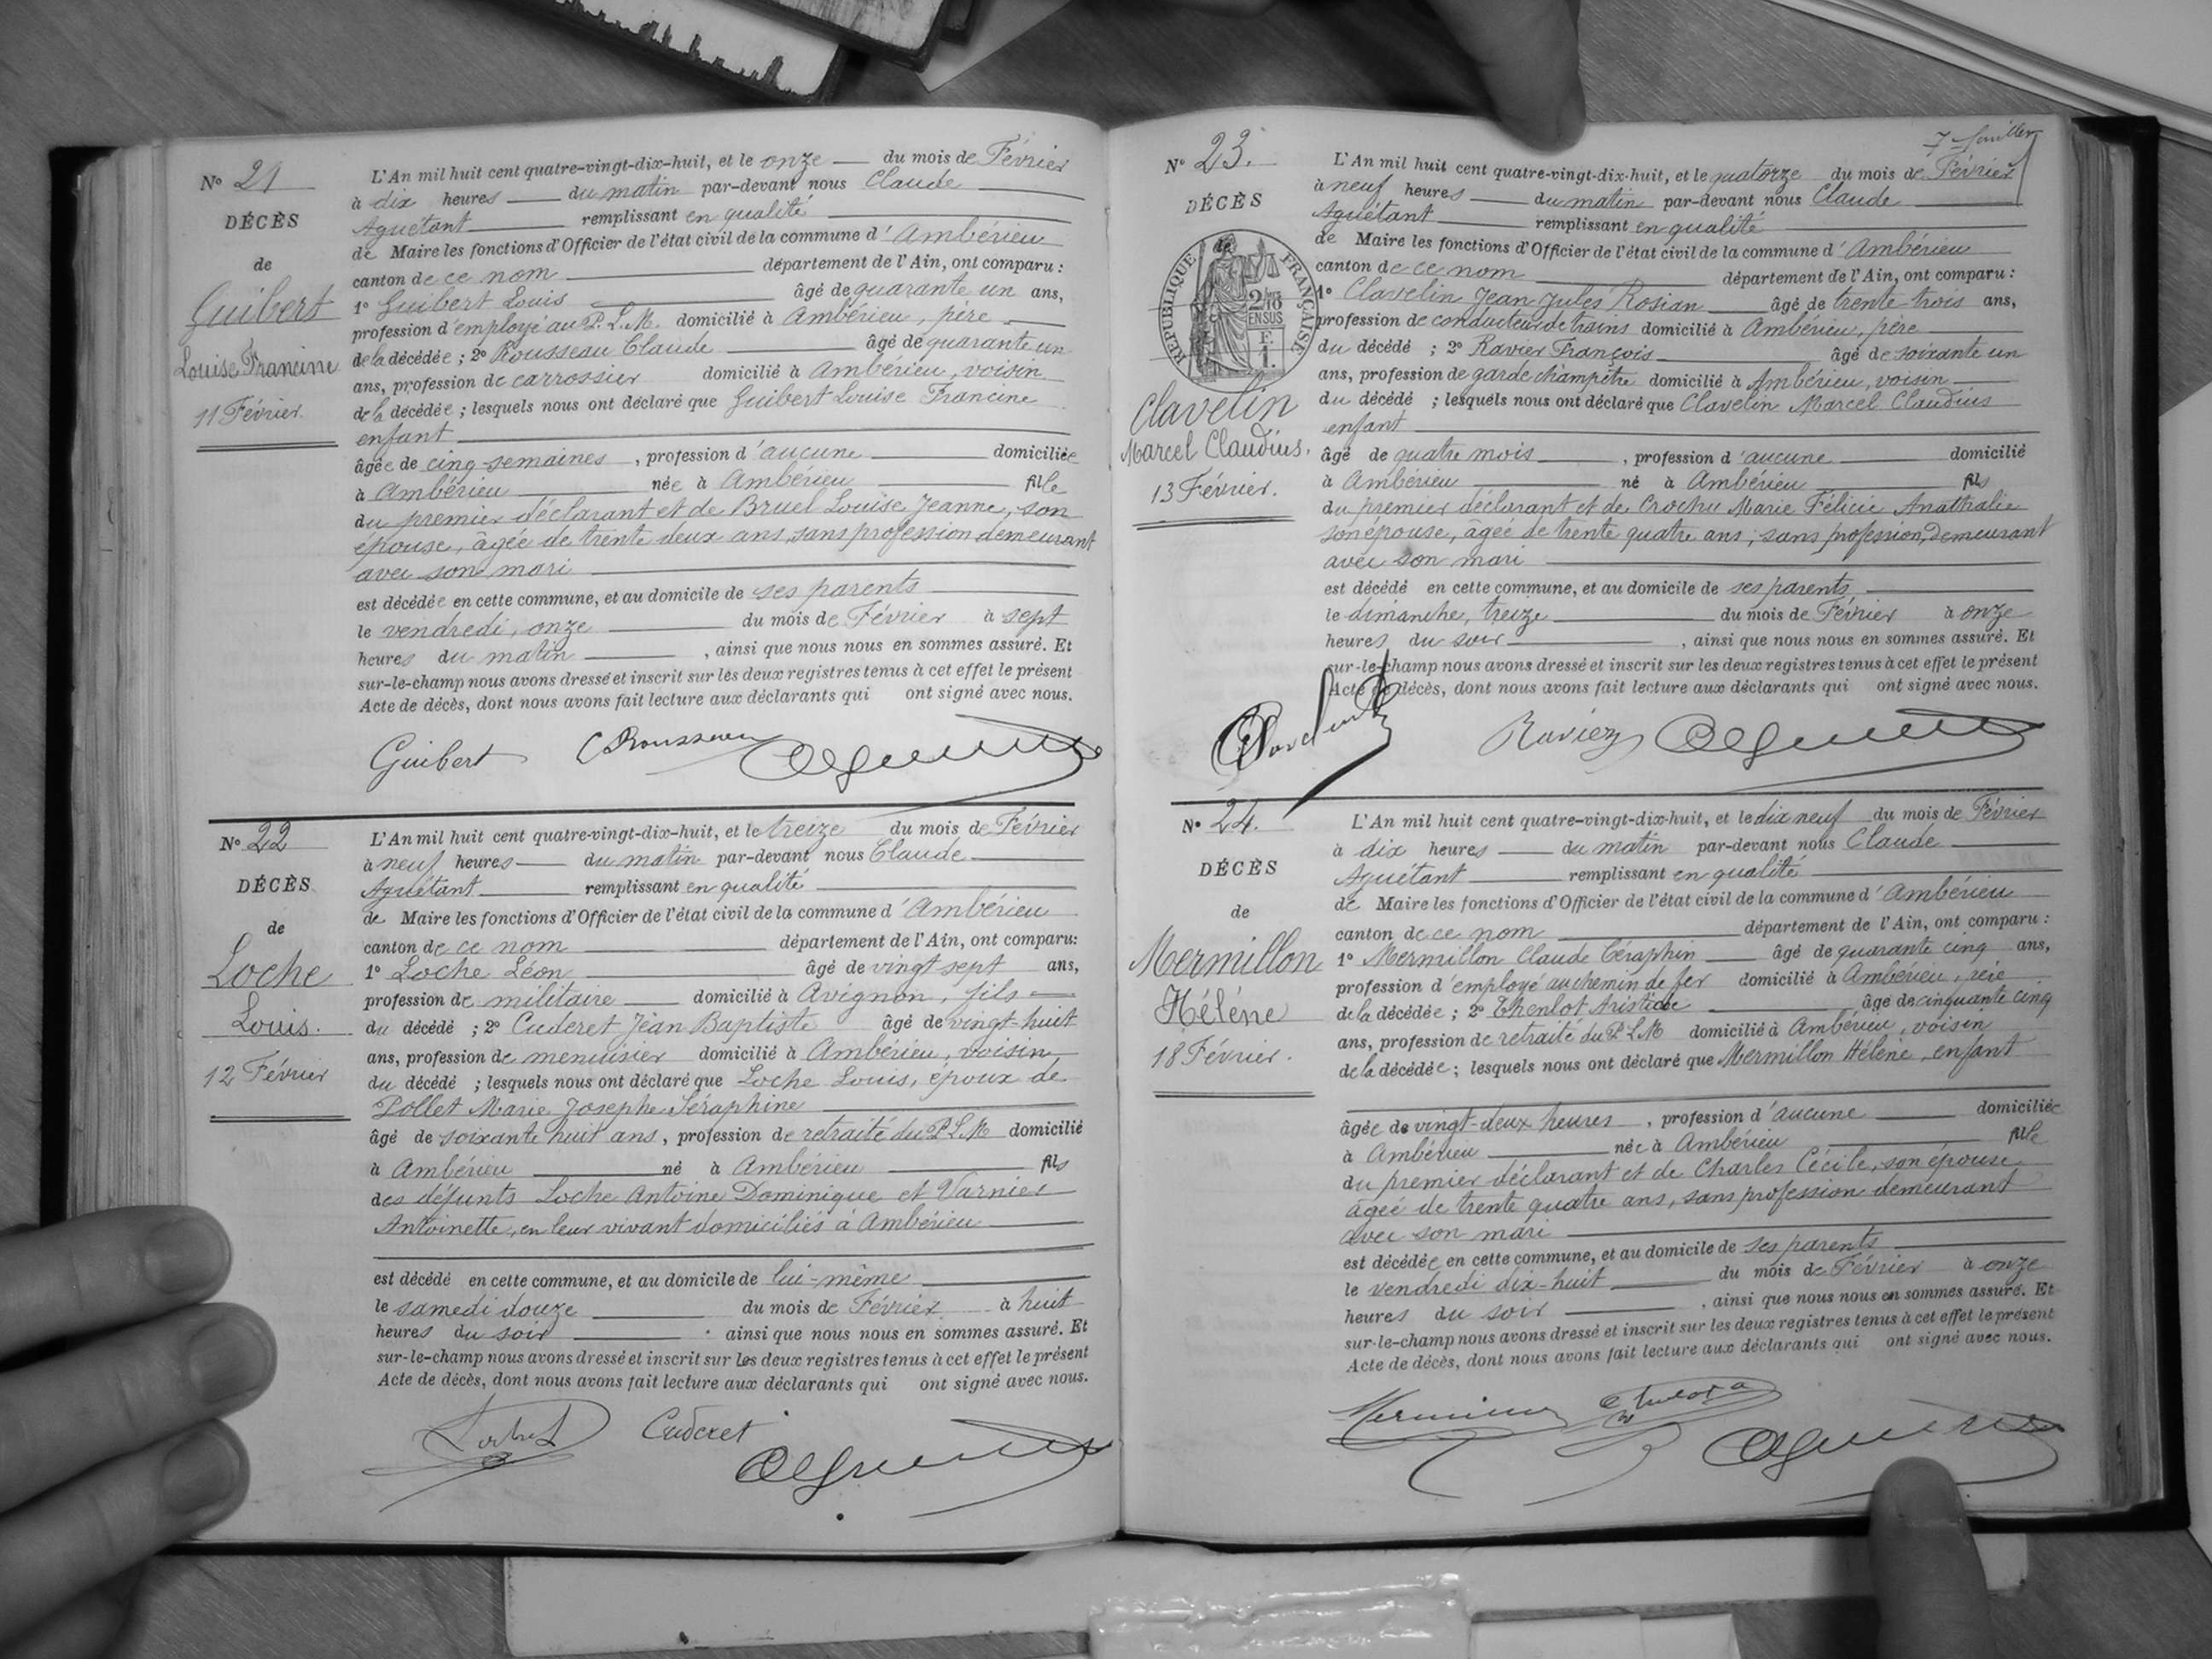 N° 21
DÉCÈS
de
Guibert
Louise Francine
11 Février
L'An mil huit cent quatre-vingt-dix-huit, et le onze du mois de Février
à dix heures du matin par-devant nous Claude
Aguétant remplissant en qualité
de Maire les fonctions d'Officier de l'état civil de la commune d'Ambérieu
canton de ce nom département de l'Ain, ont comparu :
1° Guibert Louis âgé de quarante un ans,
profession d'employé au P.L.M. domicilié à Ambérieu, père
de la décédée ; 2° Rousseau Claude âgé de quarante un
ans, profession de carrossier domicilié à Ambérieu, voisin
de la décédée ; lesquels nous ont déclaré que Guibert Louise Francine
enfant
âgée de cinq semaines, profession d'aucune domiciliée
à Ambérieu née à Ambérieu fille
du premier déclarant et de Bruel Louise Jeanne, son
épouse, âgée de trente deux ans, sans profession demeurant
avec son mari
est décédée en cette commune, et au domicile de ses parents
le vendredi, onze du mois de Février à sept
heures du matin, ainsi que nous nous en sommes assuré. Et
sur-le-champ nous avons dressé et inscrit sur les deux registres tenus à cet effet le présent
Acte de décès, dont nous avons fait lecture aux déclarants qui ont signé avec nous.
Guibert C Rousseau
N° 22
DÉCÈS
de
Loche
Louis.
12 Février
L'An mil huit cent quatre-vingt-dix-huit, et le treize du mois de Février
à neuf heures du matin par-devant nous Claude
Aguétant remplissant en qualité
de Maire les fonctions d'Officier de l'état civil de la commune d'Ambérieu
canton de ce nom département de l'Ain, ont comparu:
1° Loche Léon âgé de vingt sept ans,
profession de militaire domicilié à Avignon, fils
du décédé ; 2° Cuderet Jean Baptiste âgé de vingt-huit
ans, profession de menuisier domicilié à Ambérieu, voisin
du décédé ; lesquels nous ont déclaré que Loche Louis, époux de
Pollet Marie Josephe Séraphine
âgé de soixante huit ans, profession de retraité du P.L.M domicilié
à Ambérieu né à Ambérieu fils
des défunts Loche Antoine Dominique et Varnier
Antoinette, en leur vivant domiciliés à Ambérieu
est décédé en cette commune, et au domicile de lui-même
le samedi douze du mois de Février à huit
heures du soir ainsi que nous nous en sommes assuré. Et
sur-le-champ nous avons dressé et inscrit sur les deux registres tenus à cet effet le présent
Acte de décès, dont nous avons fait lecture aux déclarants qui ont signé avec nous.
Cuderet
7
N° 23.
DÉCÈS
de
RÉPUBLIQUE FRANÇAISE
2/10
EN SUS
F.
1.
Clavelin
Marcel Claudius.
13 Février.
L'An mil huit cent quatre-vingt-dix-huit, et le quatorze du mois de Février
à neuf heures du matin par-devant nous Claude
Aguétant remplissant en qualité
de Maire les fonctions d'Officier de l'état civil de la commune d'Ambérieu
canton de ce nom département de l'Ain, ont comparu :
1° Clavelin Jean Jules Rosian âgé de trente trois ans,
profession de conducteur de trains domicilié à Ambérieu, père
du décédé ; 2° Ravier François âgé de soixante un
ans, profession de garde champêtre domicilié à Ambérieu, voisin
du décédé ; lesquels nous ont déclaré que Clavelin Marcel Claudius
enfant
âgé de quatre mois, profession d'aucune domicilié
à Ambérieu né à Ambérieu fils
du premier déclarant et de Crochu Marie Félicie Anathalie
son épouse, âgée de trente quatre ans, sans profession, demeurant
avec son mari
est décédé en cette commune, et au domicile de ses parents
le dimanche, treize du mois de Février à onze
heures du soir, ainsi que nous nous en sommes assuré. Et
sur-le-champ nous avons dressé et inscrit sur les deux registres tenus à cet effet le présent
Acte de décès, dont nous avons fait lecture aux déclarants qui ont signé avec nous.
N° 24.
DÉCÈS
de
Mermillon
Hélène
18 Février.
L'An mil huit cent quatre-vingt-dix-huit, et le dix neuf du mois de Février
à dix heures du matin par-devant nous Claude
Aguétant remplissant en qualité
de Maire les fonctions d'Officier de l'état civil de la commune d'Ambérieu
canton de ce nom département de l'Ain, ont comparu :
1° Mermillon Claude Céraphin âgé de quarante cinq ans,
profession d'employé au chemin de fer domicilié à Ambérieu, père
de la décédée ; 2° Thenlot Aristide âgé de cinquante cinq
ans, profession de retraité du P.L.M domicilié à Ambérieu, voisin
de la décédée ; lesquels nous ont déclaré que Mermillon Hélène, enfant
âgée de vingt-deux heures, profession d'aucune domiciliée
à Ambérieu née à Ambérieu fille
du premier déclarant et de Charles Cécile, son épouse
âgée de trente quatre ans, sans profession demeurant
avec son mari
est décédée en cette commune, et au domicile de ses parents
le vendredi dix-huit du mois de Février à onze
heures du soir, ainsi que nous nous en sommes assuré. Et
sur-le-champ nous avons dressé et inscrit sur les deux registres tenus à cet effet le présent
Acte de décès, dont nous avons fait lecture aux déclarants qui ont signé avec nous.